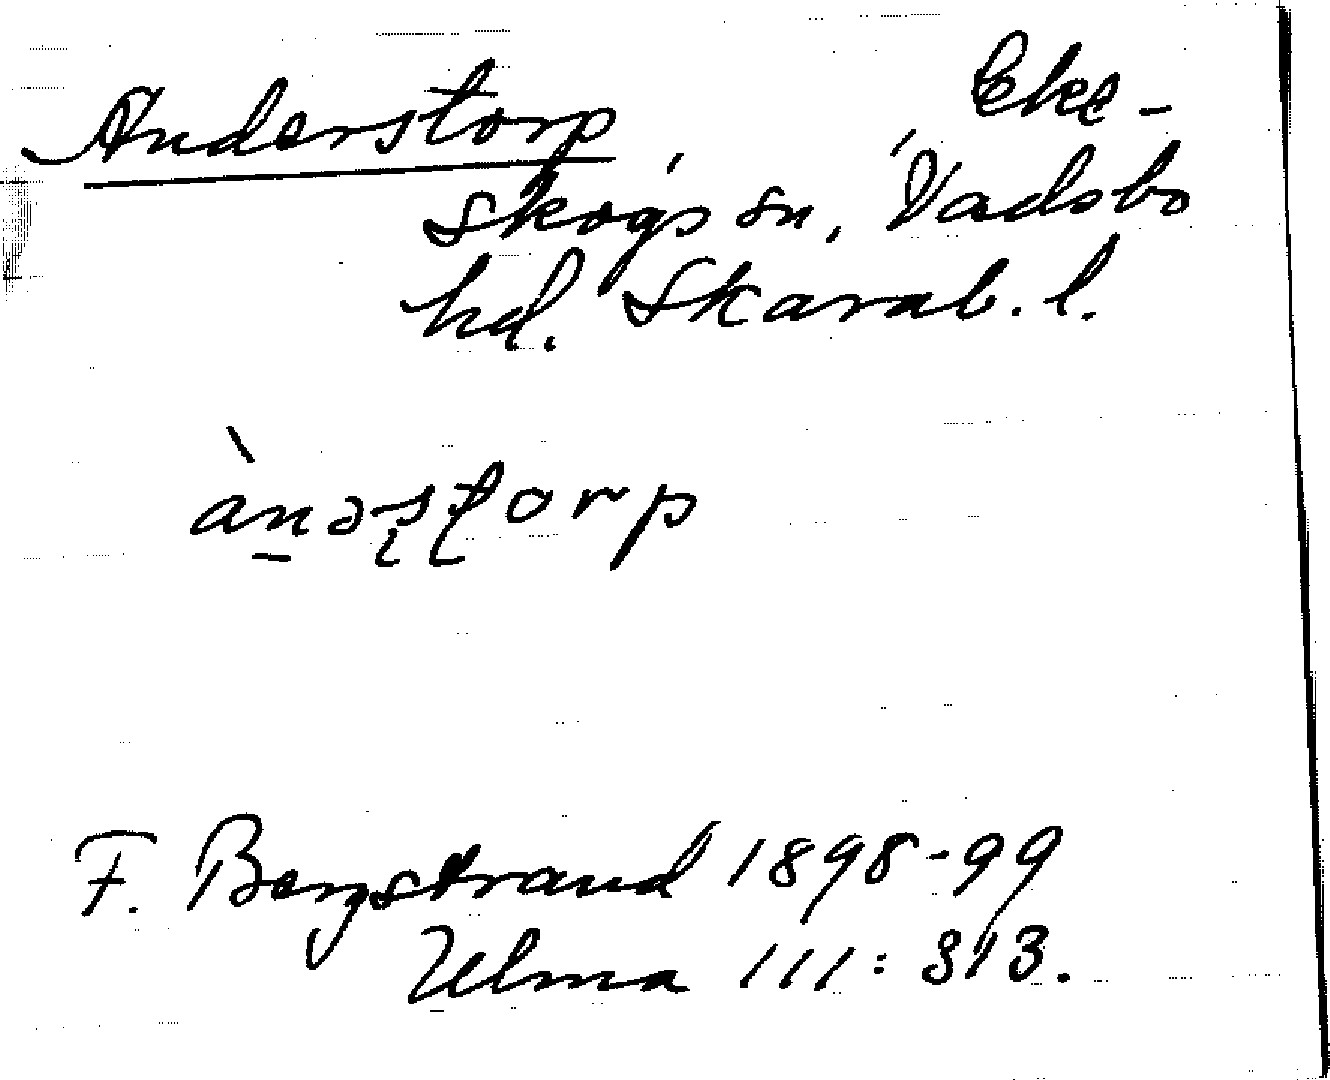 Anderstorp, Eke-
skogs sn, Vadsbo
hd. Skarab. l.
ànəstorp
F. Bergstrand 1898-99
Ulma 111: 813.